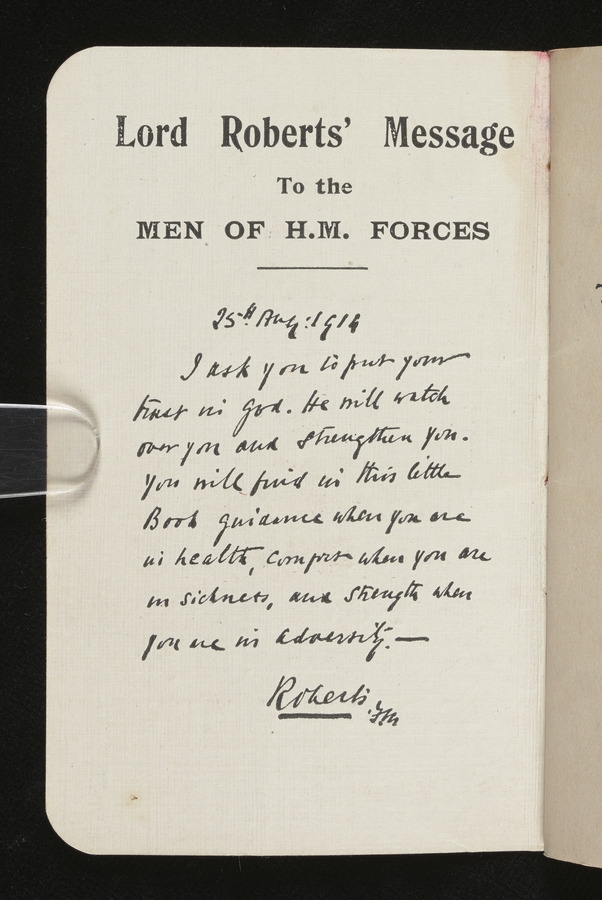 Lord Roberts' Message
To the
MEN OF H.M. FORCES
25th Aug: 1914
I ask you to put your
trust in God. He will watch
over you and strengthen you.
You will find in this little
Book guidance when you are
in health, comfort when you are
in sickness, and strength when
you are in adversity.—
Roberts, FM